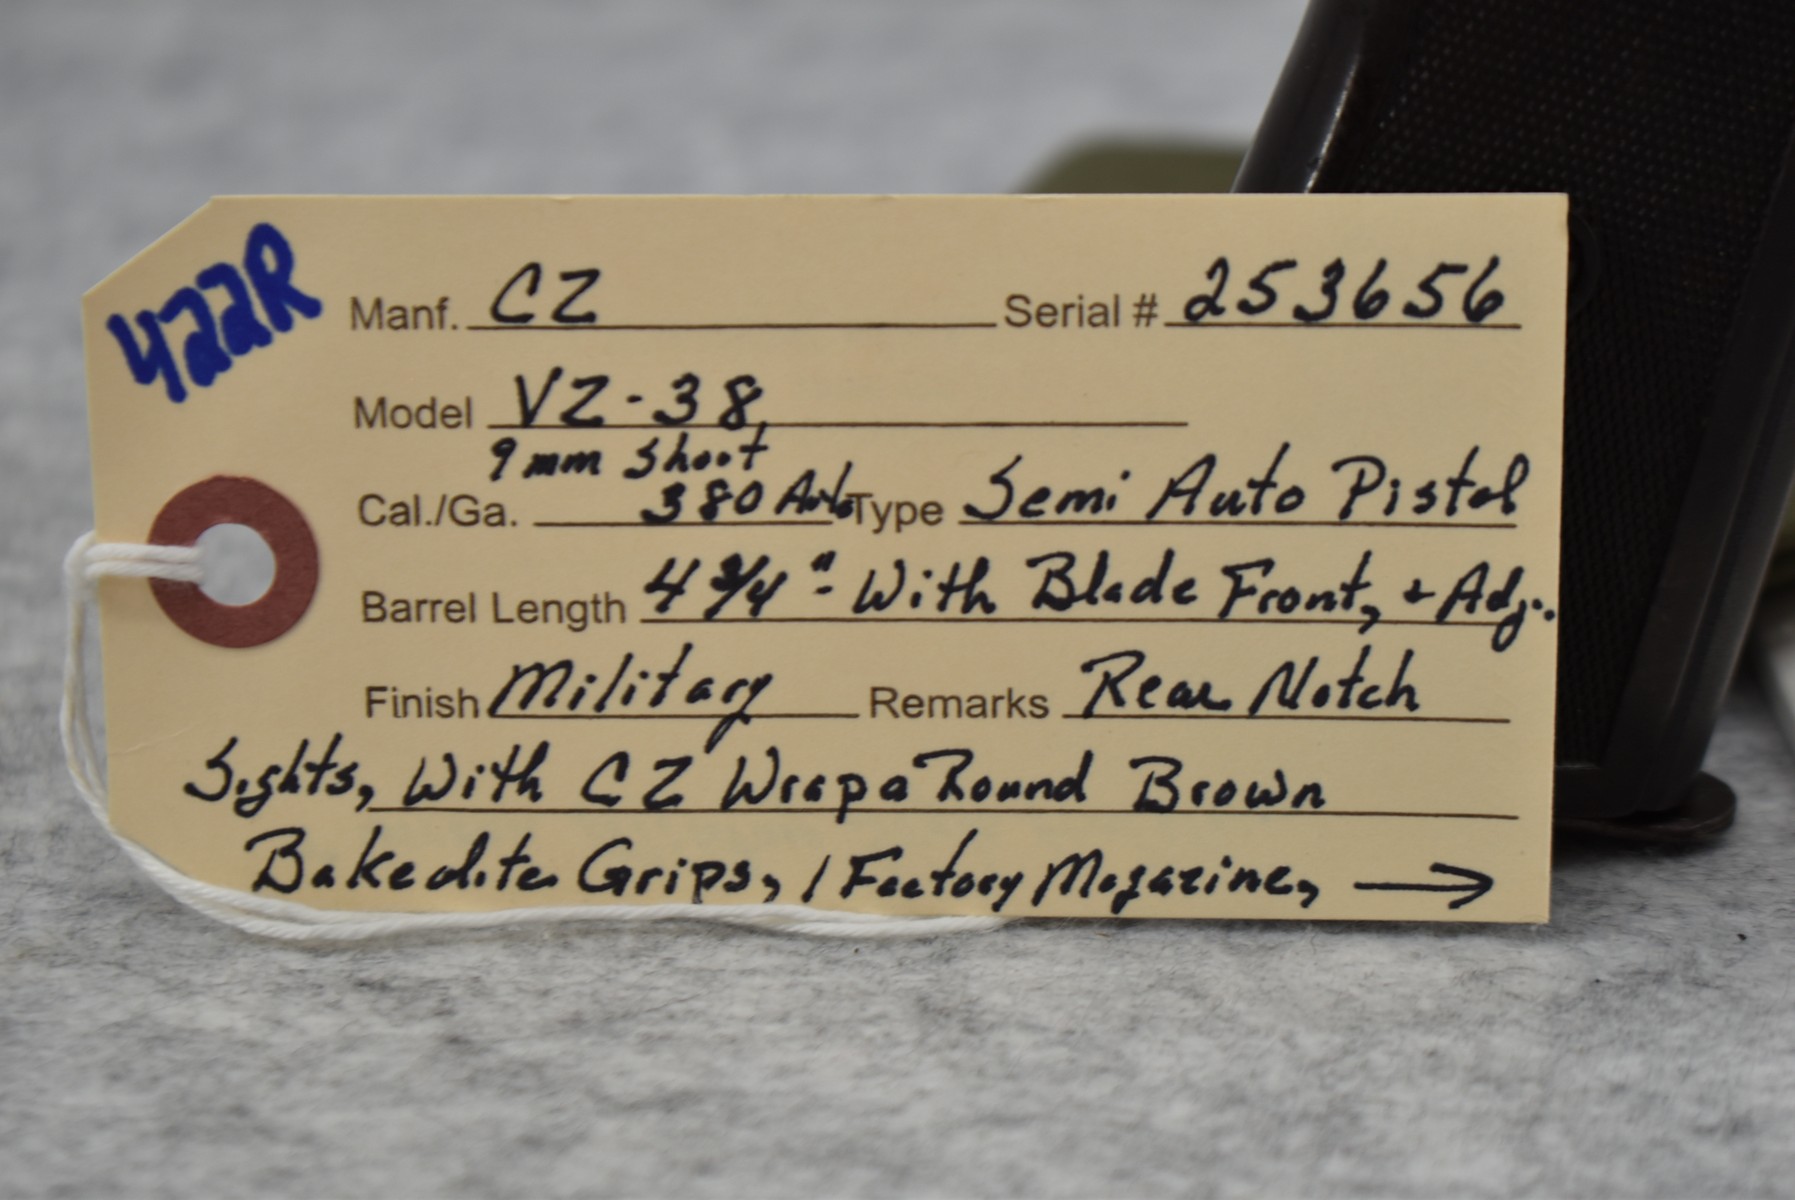 422R
Manf. CZ Serial # 253656
Model VZ-38,
9mm Short
Cal./Ga. 380 Auto Type Semi Auto Pistol
Barrel Length 4 3/4" - With Blade Front, + Adj.
Finish Military Remarks Rear Notch
Sights, With CZ WrapaRound Brown
Bakedlite Grips, 1 Factory Magazine, →